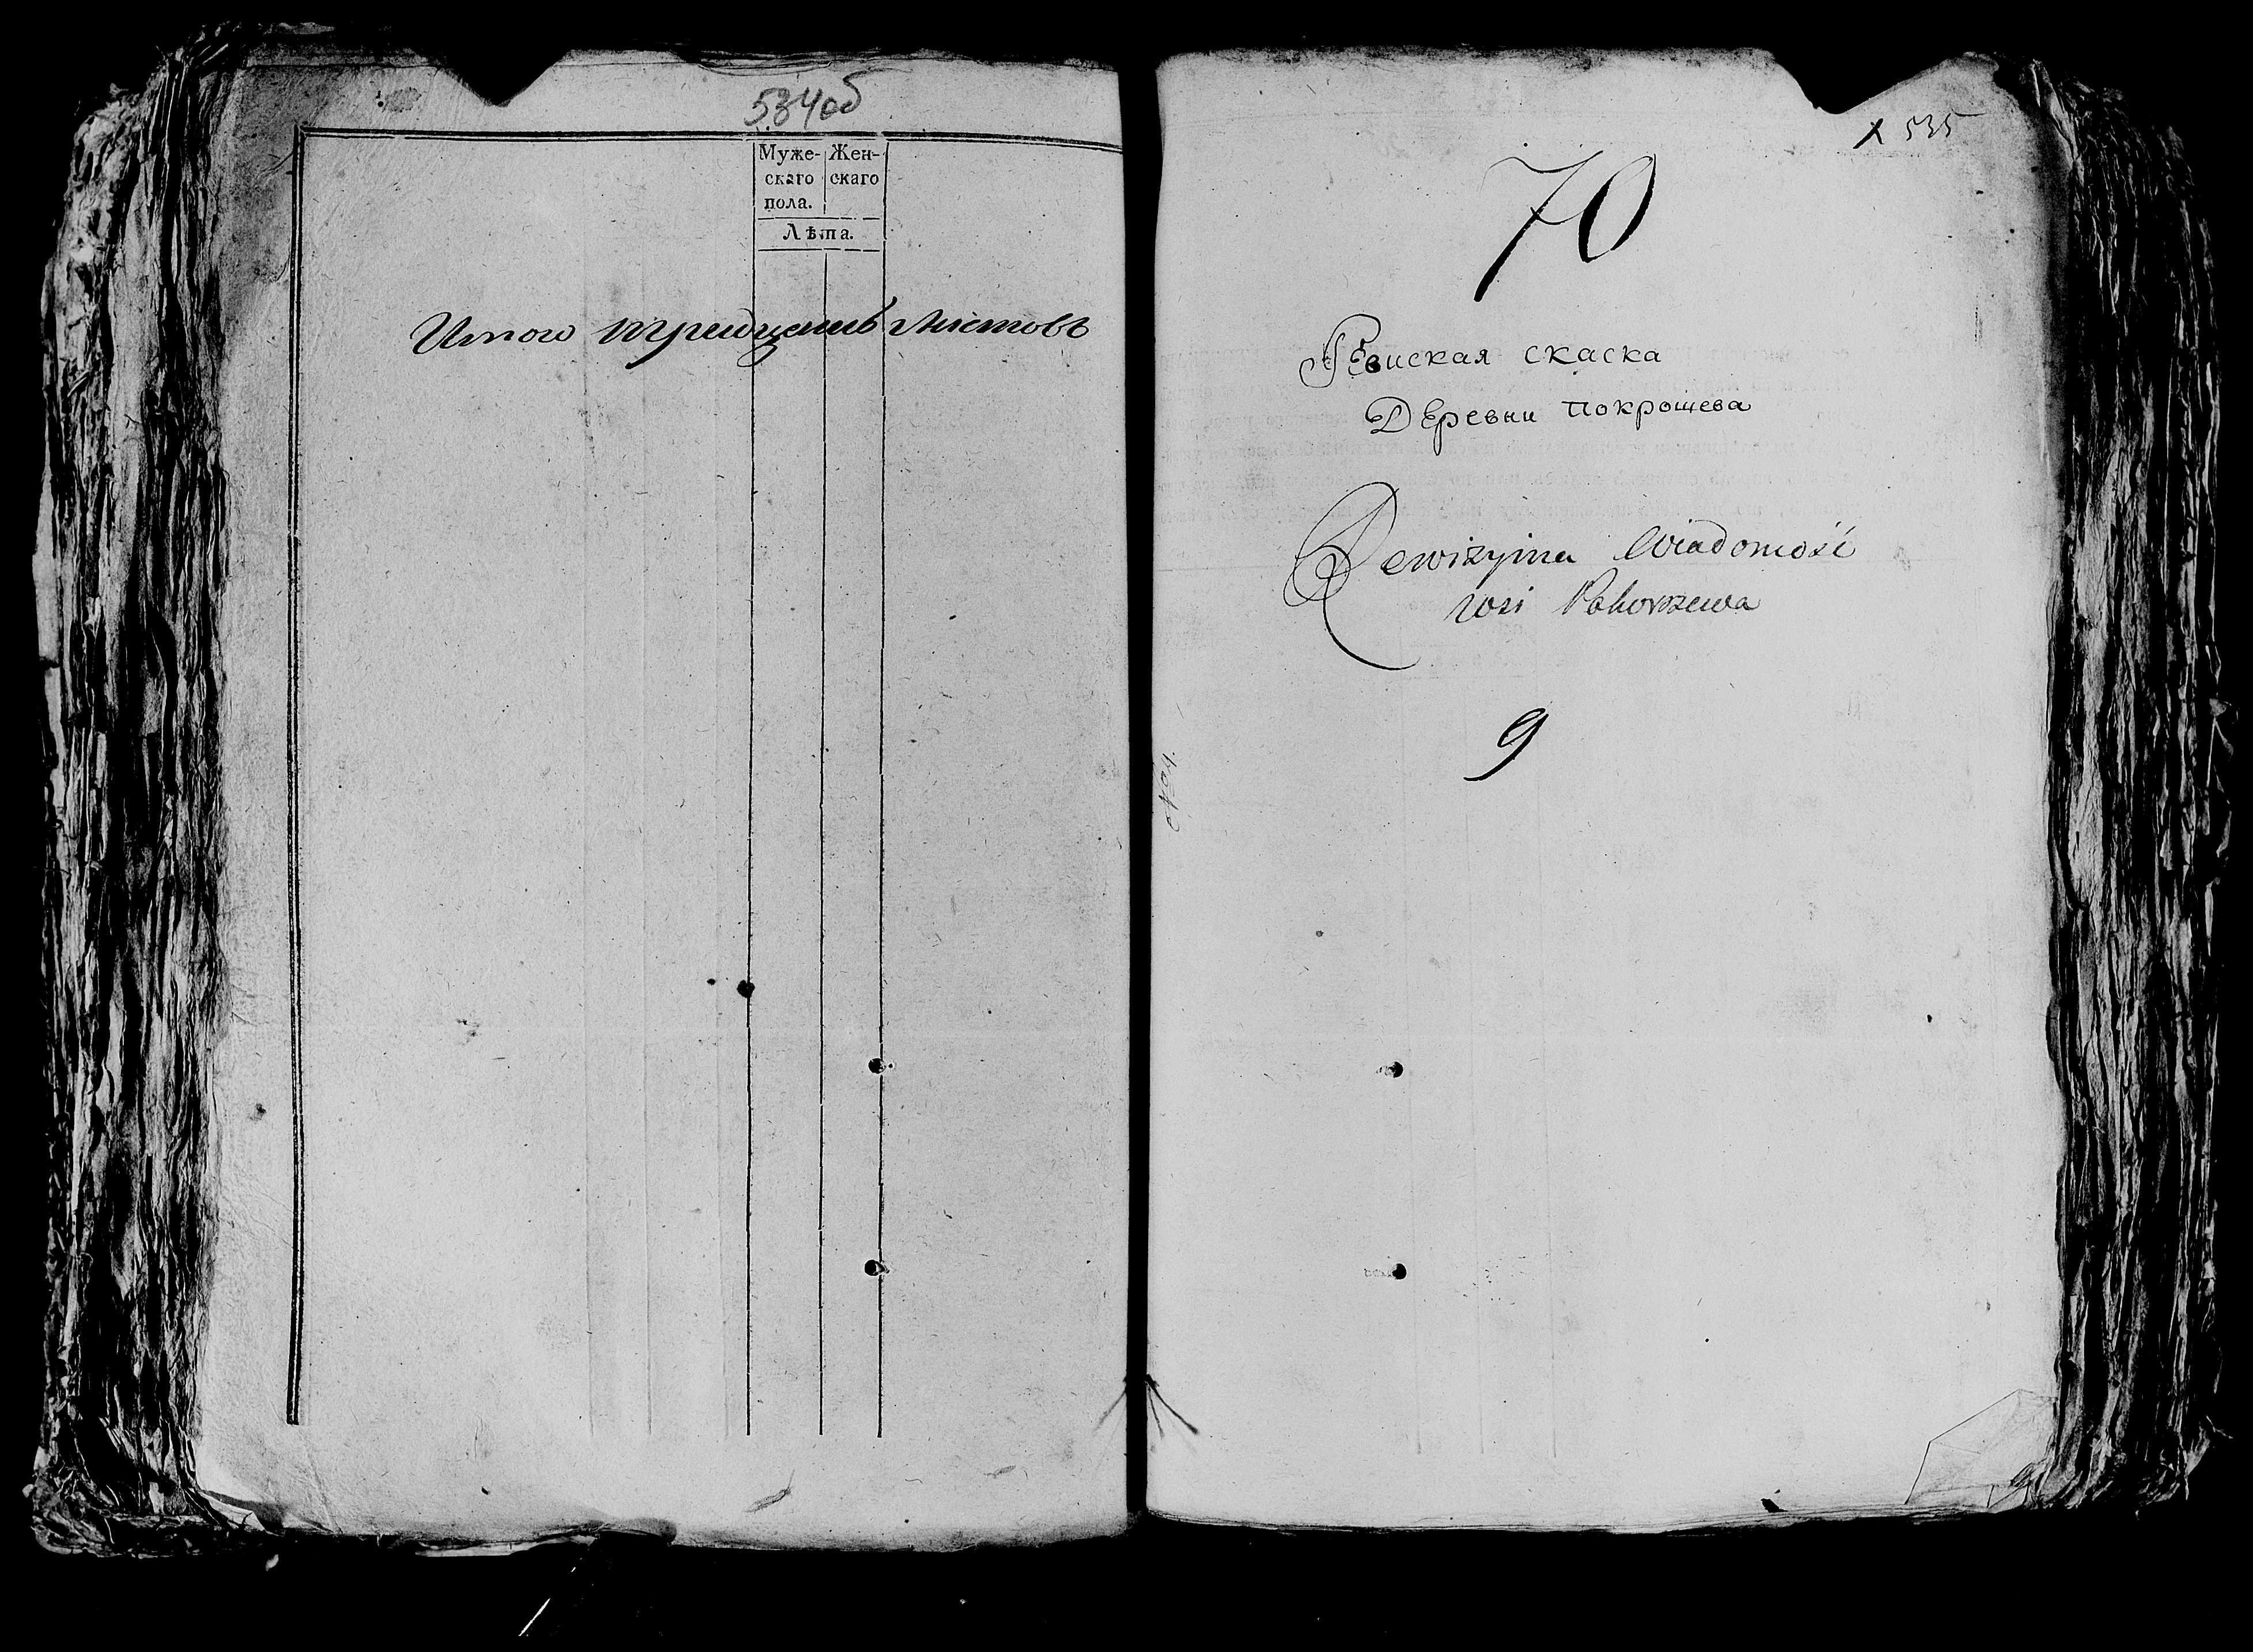 534об
Муже- Жен-
скаго скаго
пола.
Лѣта.
Итого тридцать листовъ
х 535
70
Ревиская скаска
Деревни Покрошева
Rewizyina Wiadomość
wsi
9